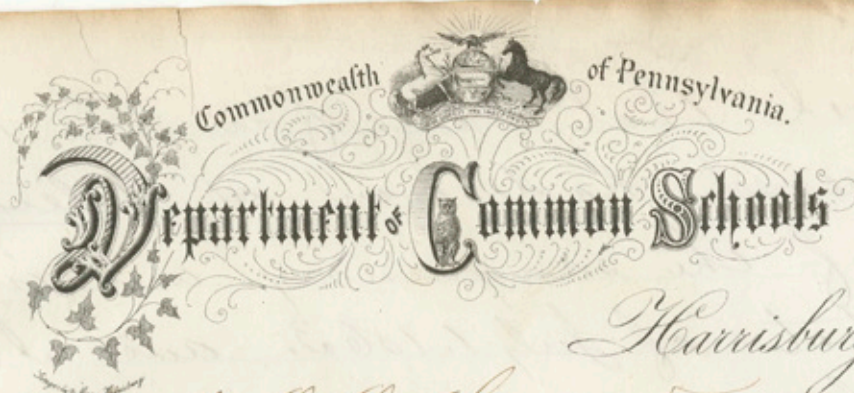 Commonwealth of Pennsylvania.
Department of Common Schools
Harrisburg